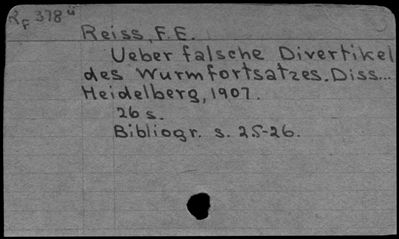 RF 378 ü
Reiss, F.E.
Ueber falsche Divertikel
des Wurmfortsatzes. Diss...
Heidelberg, 1907.
26 s.
Bibliogr. s. 25-26.